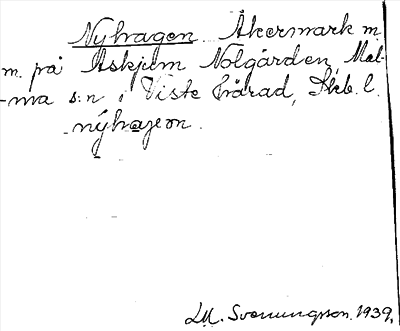 Nyhagen Åkermark m.
m. på Askjum Nolgården, Mal-
-ma s:n i Viste härad, Skb. l.
nýhaɡeon.
LM. Svenungsson. 1939.